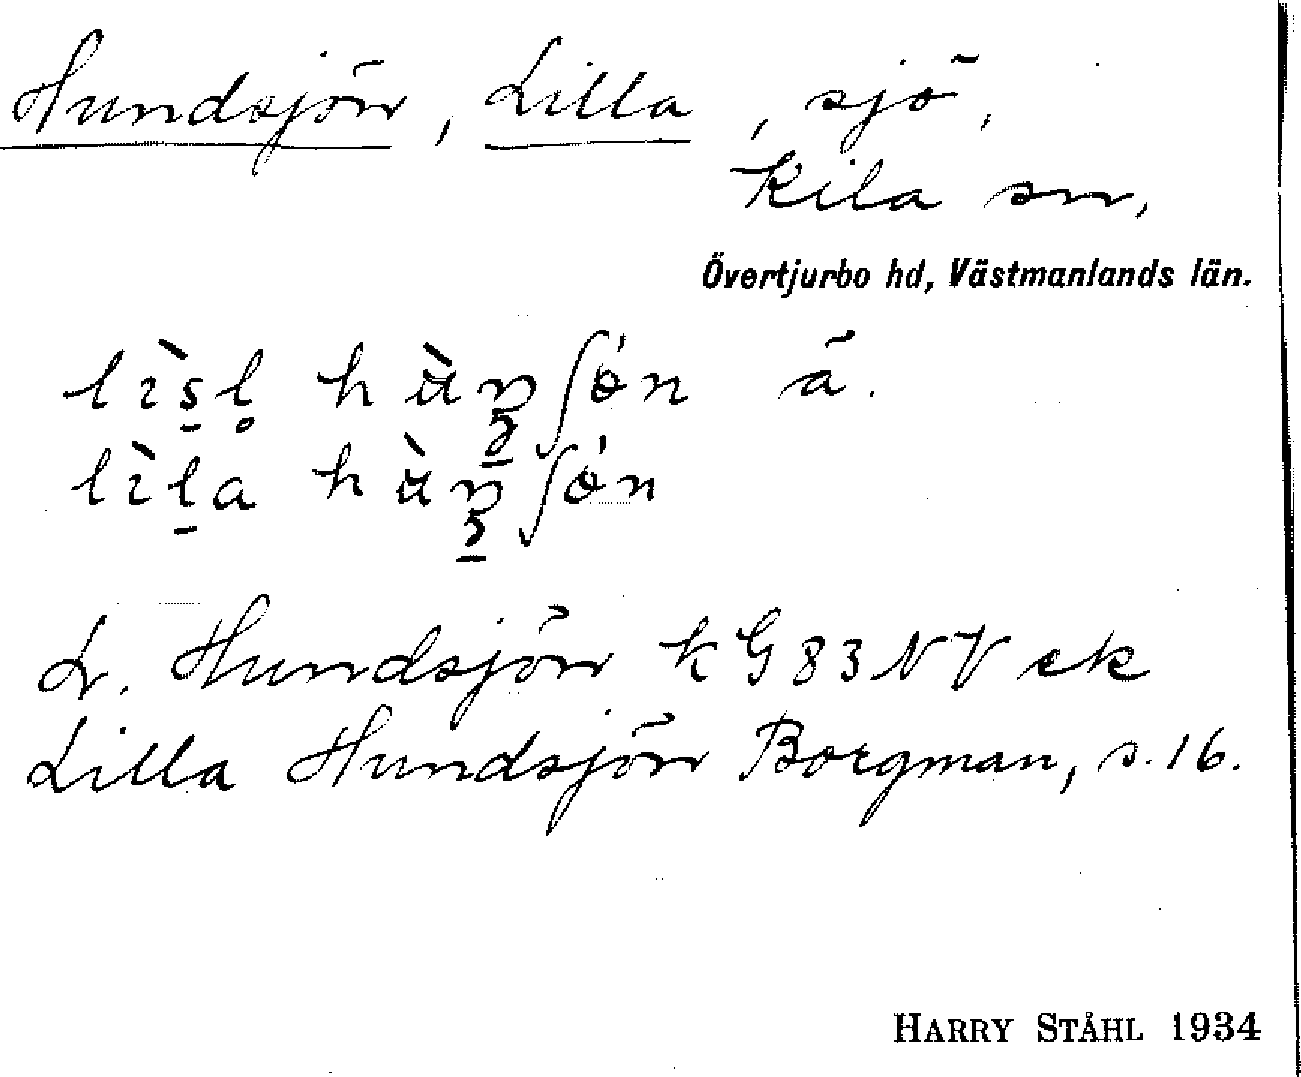 Hundsjön, Lilla, sjö,
Kila sn,
Övertjurbo hd, Västmanlands län.
ā.
L. Hundsjön kG83NV ek
Lilla Hundsjön Borgman, s. 16.
HARRY STÅHL 1934